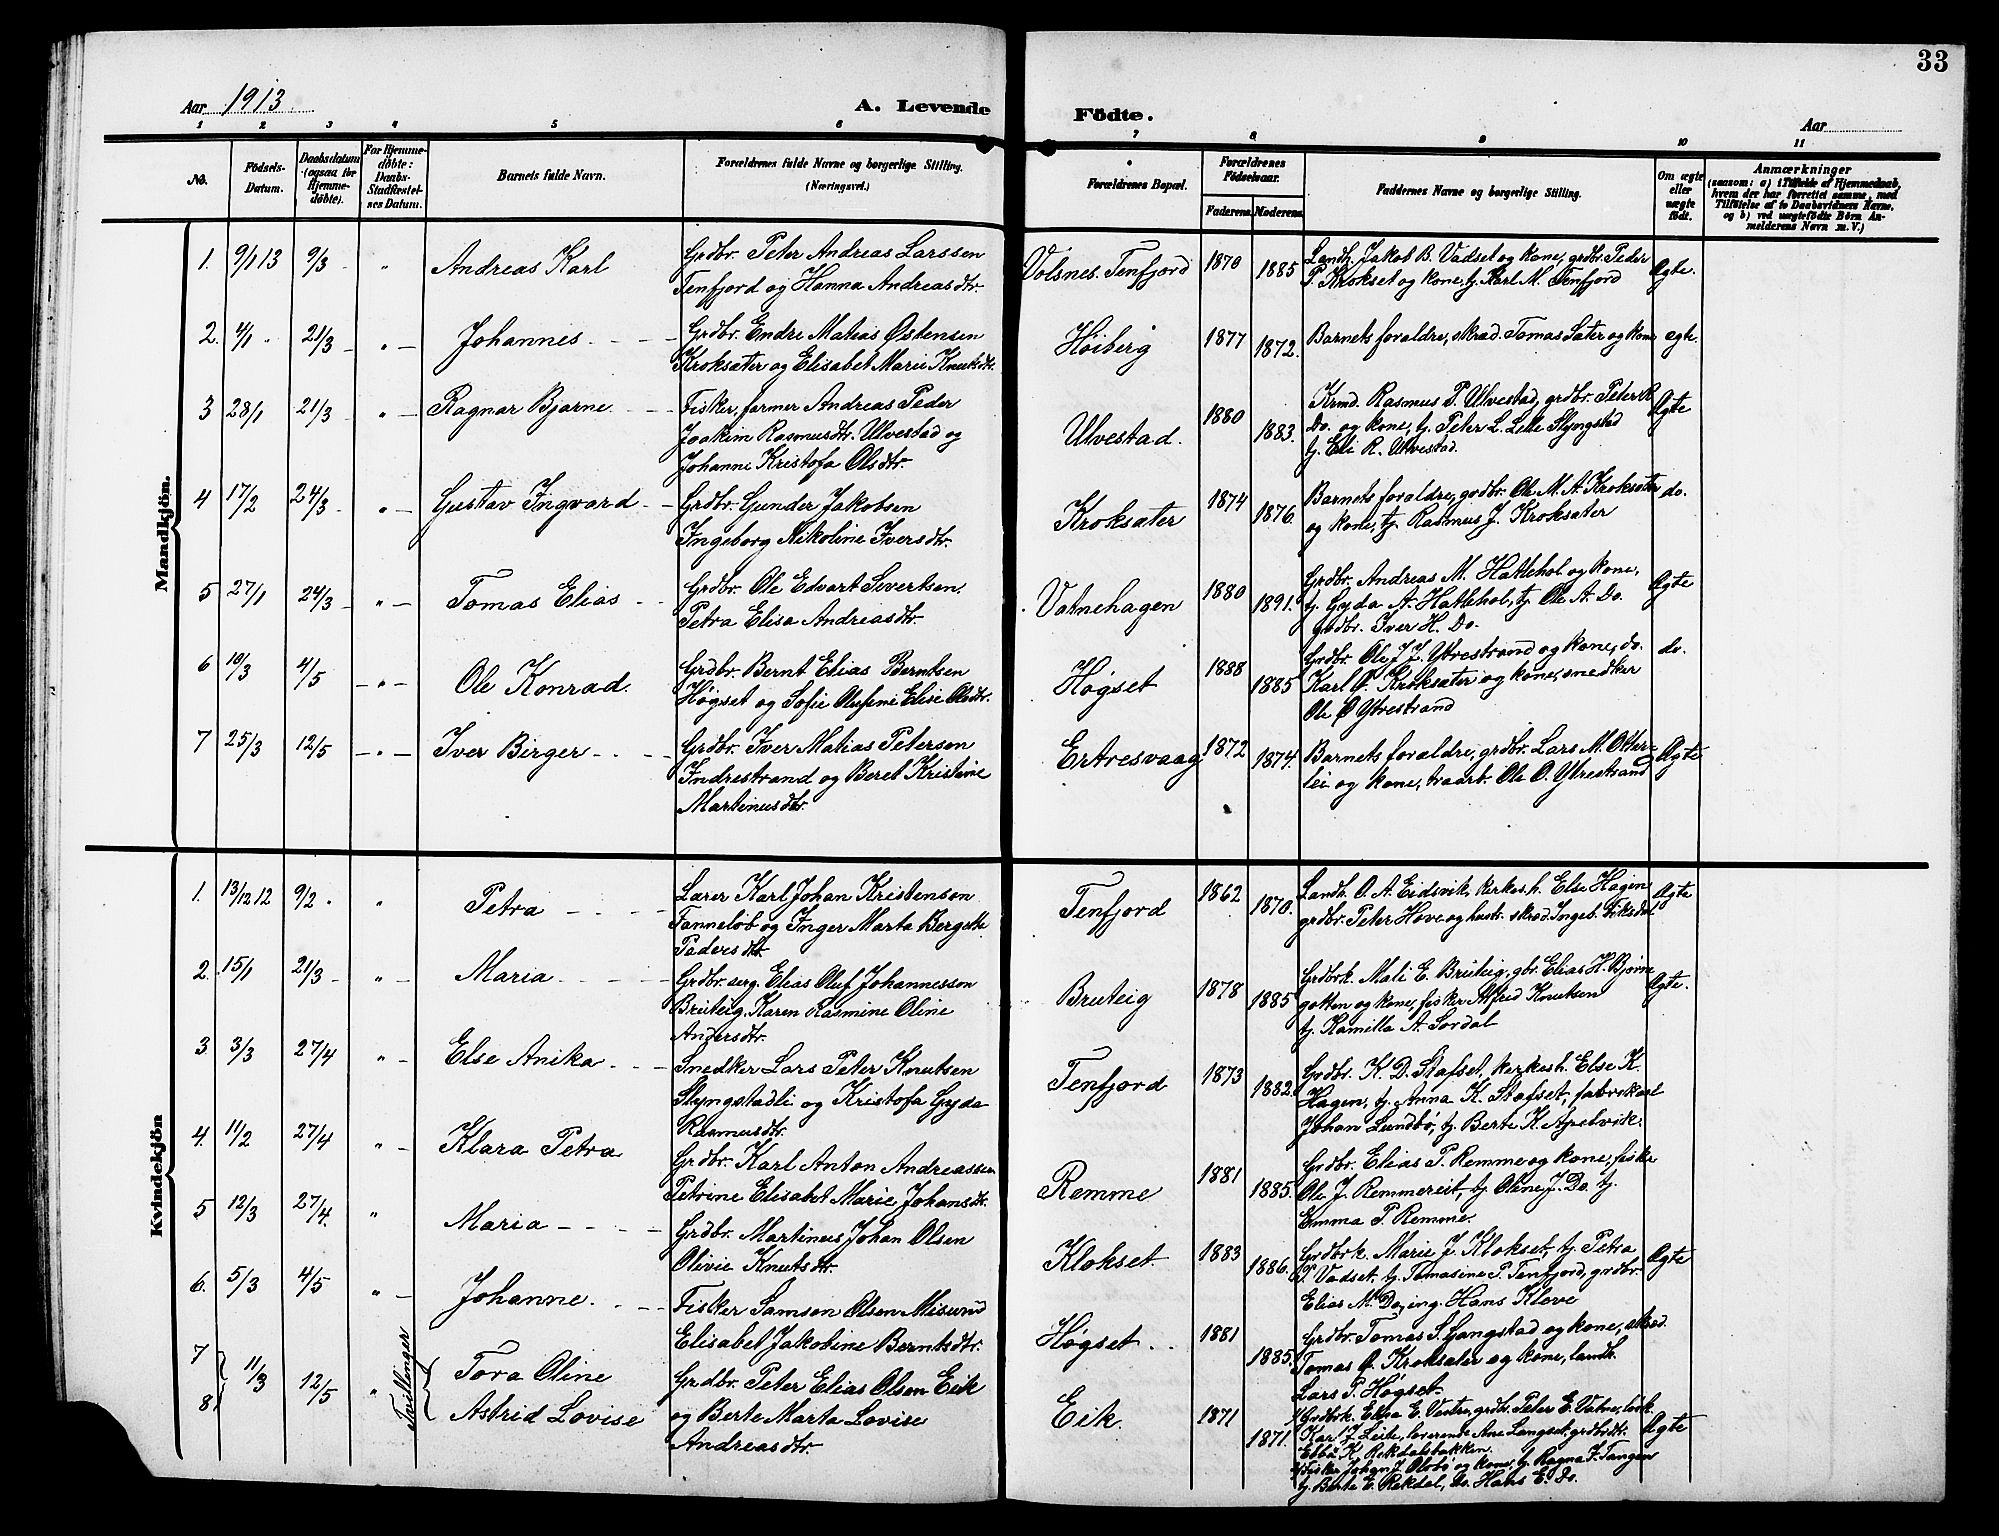 33
Aar 1913.
A. Levende Födte.
Aar
1 2 3 4 5 6 7 8 9 10 11
No.
Födsels-Datum.
Daabsdatum (ogsaa for Hjemme-döbte).
For Hjemme-döbte: Daabs-Stadfæstel-ses Datum.
Barnets fulde Navn.
Forældrenes fulde Navne og borgerlige Stilling. (Næringsvei.)
Forældrenes Bopæl.
Forældrenes Födselsaar.
Faderens. Moderens.
Faddernes Navne og borgerlige Stilling.
Om ægte eller uægte födt.
Anmærkninger
(saasom: a) i Tilfælde af Hjemmedaab, hvem der har forrettet samme, med Tilföielse af to Daabsvidners Navne, og b) ved uægtefödte Börn An-melderens Navn m. V.)
Mandkjön.
1. 9/1 13 9/3 - " Andreas Karl
Grdbr. Peter Andreas Larssen
Tenfjord og Hanna Andreasdtr.
Volsnes. Tenfjord 1870 1885
Landh. Jakob B. Vadset og kone, grdbr. Peder
P. Krokset og kone, tj. Karl M. Tenfjord
Ægte.
2. 4/1 " 21/3 - " - Johannes
Grdbr. Endre Matias Østensen
Kroksæter og Elisabet Marie Knutsdtr.
Høiberg 1877 1872.
Barnets forældre, skræd. Tomas Sæter og kone
egte.
3 28/1 21/3 - " - Ragnar Bjarne
Fisker, farmer Andreas Peder
Joakim Rasmusdtr. Ulvestad og
Johanne Kristofa Olsdtr.
Ulvestad. 1880 1883.
Krmd. Rasmus P. Ulvestad, grdbr. Peter R
Do. og kone, tj. Peter L. Lille Slyngstad
tj. Eli R. Ulvestad.
Ægte
4 17/2 24/3 - " - Gustav Ingvard
Grdbr. Gunder Jakobsen
Ingeborg Nikoline Iversdtr.
Kroksæter 1874 1876.
Barnets forældre, grdbr. Ole M. A. Kroksæter
og kone, tj. Rasmus J. Kroksæter
do.
5 27/1 24/3 - " - Tomas Elias
Grdbr. Ole Edvart Sivertsen.
Petra Elisa Andreasdtr.
Vatnehagen 1880 1891.
Grdbr. Andreas M. Hatlehol og kone,
tj. Gyda A. Hatlehol, tj. Ole A. Do.
grdbr. Iver H. Do.
Ægte
6 10/3 4/5 - " - Ole Konrad.
Grdbr. Bernt Elias Berntsen
Høgset og Sofie Olufine Elise Olsdtr.
Høgset 1888 1885
Grdbr. Ole J. J. Ytrestrand og kone, do.
Karl O. Kroksæter og kone, snedker
Ole O Ytrestrand
do.
7 25/3 12/5 - " - Iver Birger
Grdbr. Iver Matias Petersen
Indrestrand og Beret Kristine
Martinusdtr.
Ertresvaag 1872 1874.
Barnets forældre, grdbr. Lars M. Otter-
lei og kone, traart. Ole O. Ytrestrand
Ægte
Kvindekjön
1. 13/12 12 9/2 " " Petra
Lærer Karl Johan Kristensen
Tanneløb og Inger Marta Bergitte
Pedersdtr.
Tenfjord 1862 1870.
Landh. O. A. Eidsvik, kirkesh. Else Hagen
grdbr. Peter Hove og hustr. skræd. Ingeb. Fiksdal
Ægte
2. 15/1 21/3 - " - Maria
Grdbr. serg. Elias Oluf Johannessen
Bruteig. Karen Rasmine Oline
Andersdtr.
Bruteig 1878 1885
Grdbrk. Mali E. Bruteig, gbr. Elias H. Bjørne
gotten og kone, fisker Alfred Knutsen
tj. Kamilla A. Sordal
Ægte.
3. 3/3 27/4 " - Else Anika
Snedker Lars Peter Knutsen
Slyngstadli og Kristofa Gyda
Rasmusdtr.
Tenfjord 1873 1882.
Grdbr. K. D. Stafset, kirkesh. Else K.
Hagen, tj. Anna K. Stafset, fabrikeier
Johan Lundbø, tj. Berte K. Apelvik.
4. 11/2 27/4 " - Klara Petra
Grdbr. Karl Anton Andreassen
Petrine Elisabet Marie Johansdtr.
Remme 1881 1885.
Grdbr. Elias P. Remme og kone, fiske
Ole J. Remmereit, tj. Oline J. Do. tj.
Emma P. Remme.
5 12/3 27/4. " Maria
Grdbr. Martinus Johan Olsen
Olivie Knutsdtr.
Klokset. 1883 1886.
Grdbrk. Marie J. Klokset, tj. Petra
P. Vadset, tj. Tomasine P. Tenfjord, grdbr.
Elias M. Do, ing. Hans Kleve
Ægte
6. 5/3 4/5 " - Johanne.
Fisker Samson Olsen Misund
Elisabet Jakobine Berntsdtr.
Høgset 1881 1885.
Grdbr. Tomas S. Gangstad og kone, skræd.
Tomas O. Kroksæter og kone, landh.
Lars P. Høgset
7 8 11/3 12/5 " Tvillinger
Tora Oline
Astrid Lovise
Grdbr. Peter Elias Olsen Eik
og Berte Marta Lovise
Andreasdtr.
Eik. 1871 1871.
Grdbrk. Elisa E. Vestre, grdbr. Peter E. Vatne, lösk.
Karl J. Leite, lærerinde Ane Langset, grdbrdtr.
Ebba K. Rekdalsbakken.
Fisker Johan J. Olsbø og kone, tj. Ragna J. Tangen
tj. Berte E. Rekdal, do. Hans E. Do.
Ægte